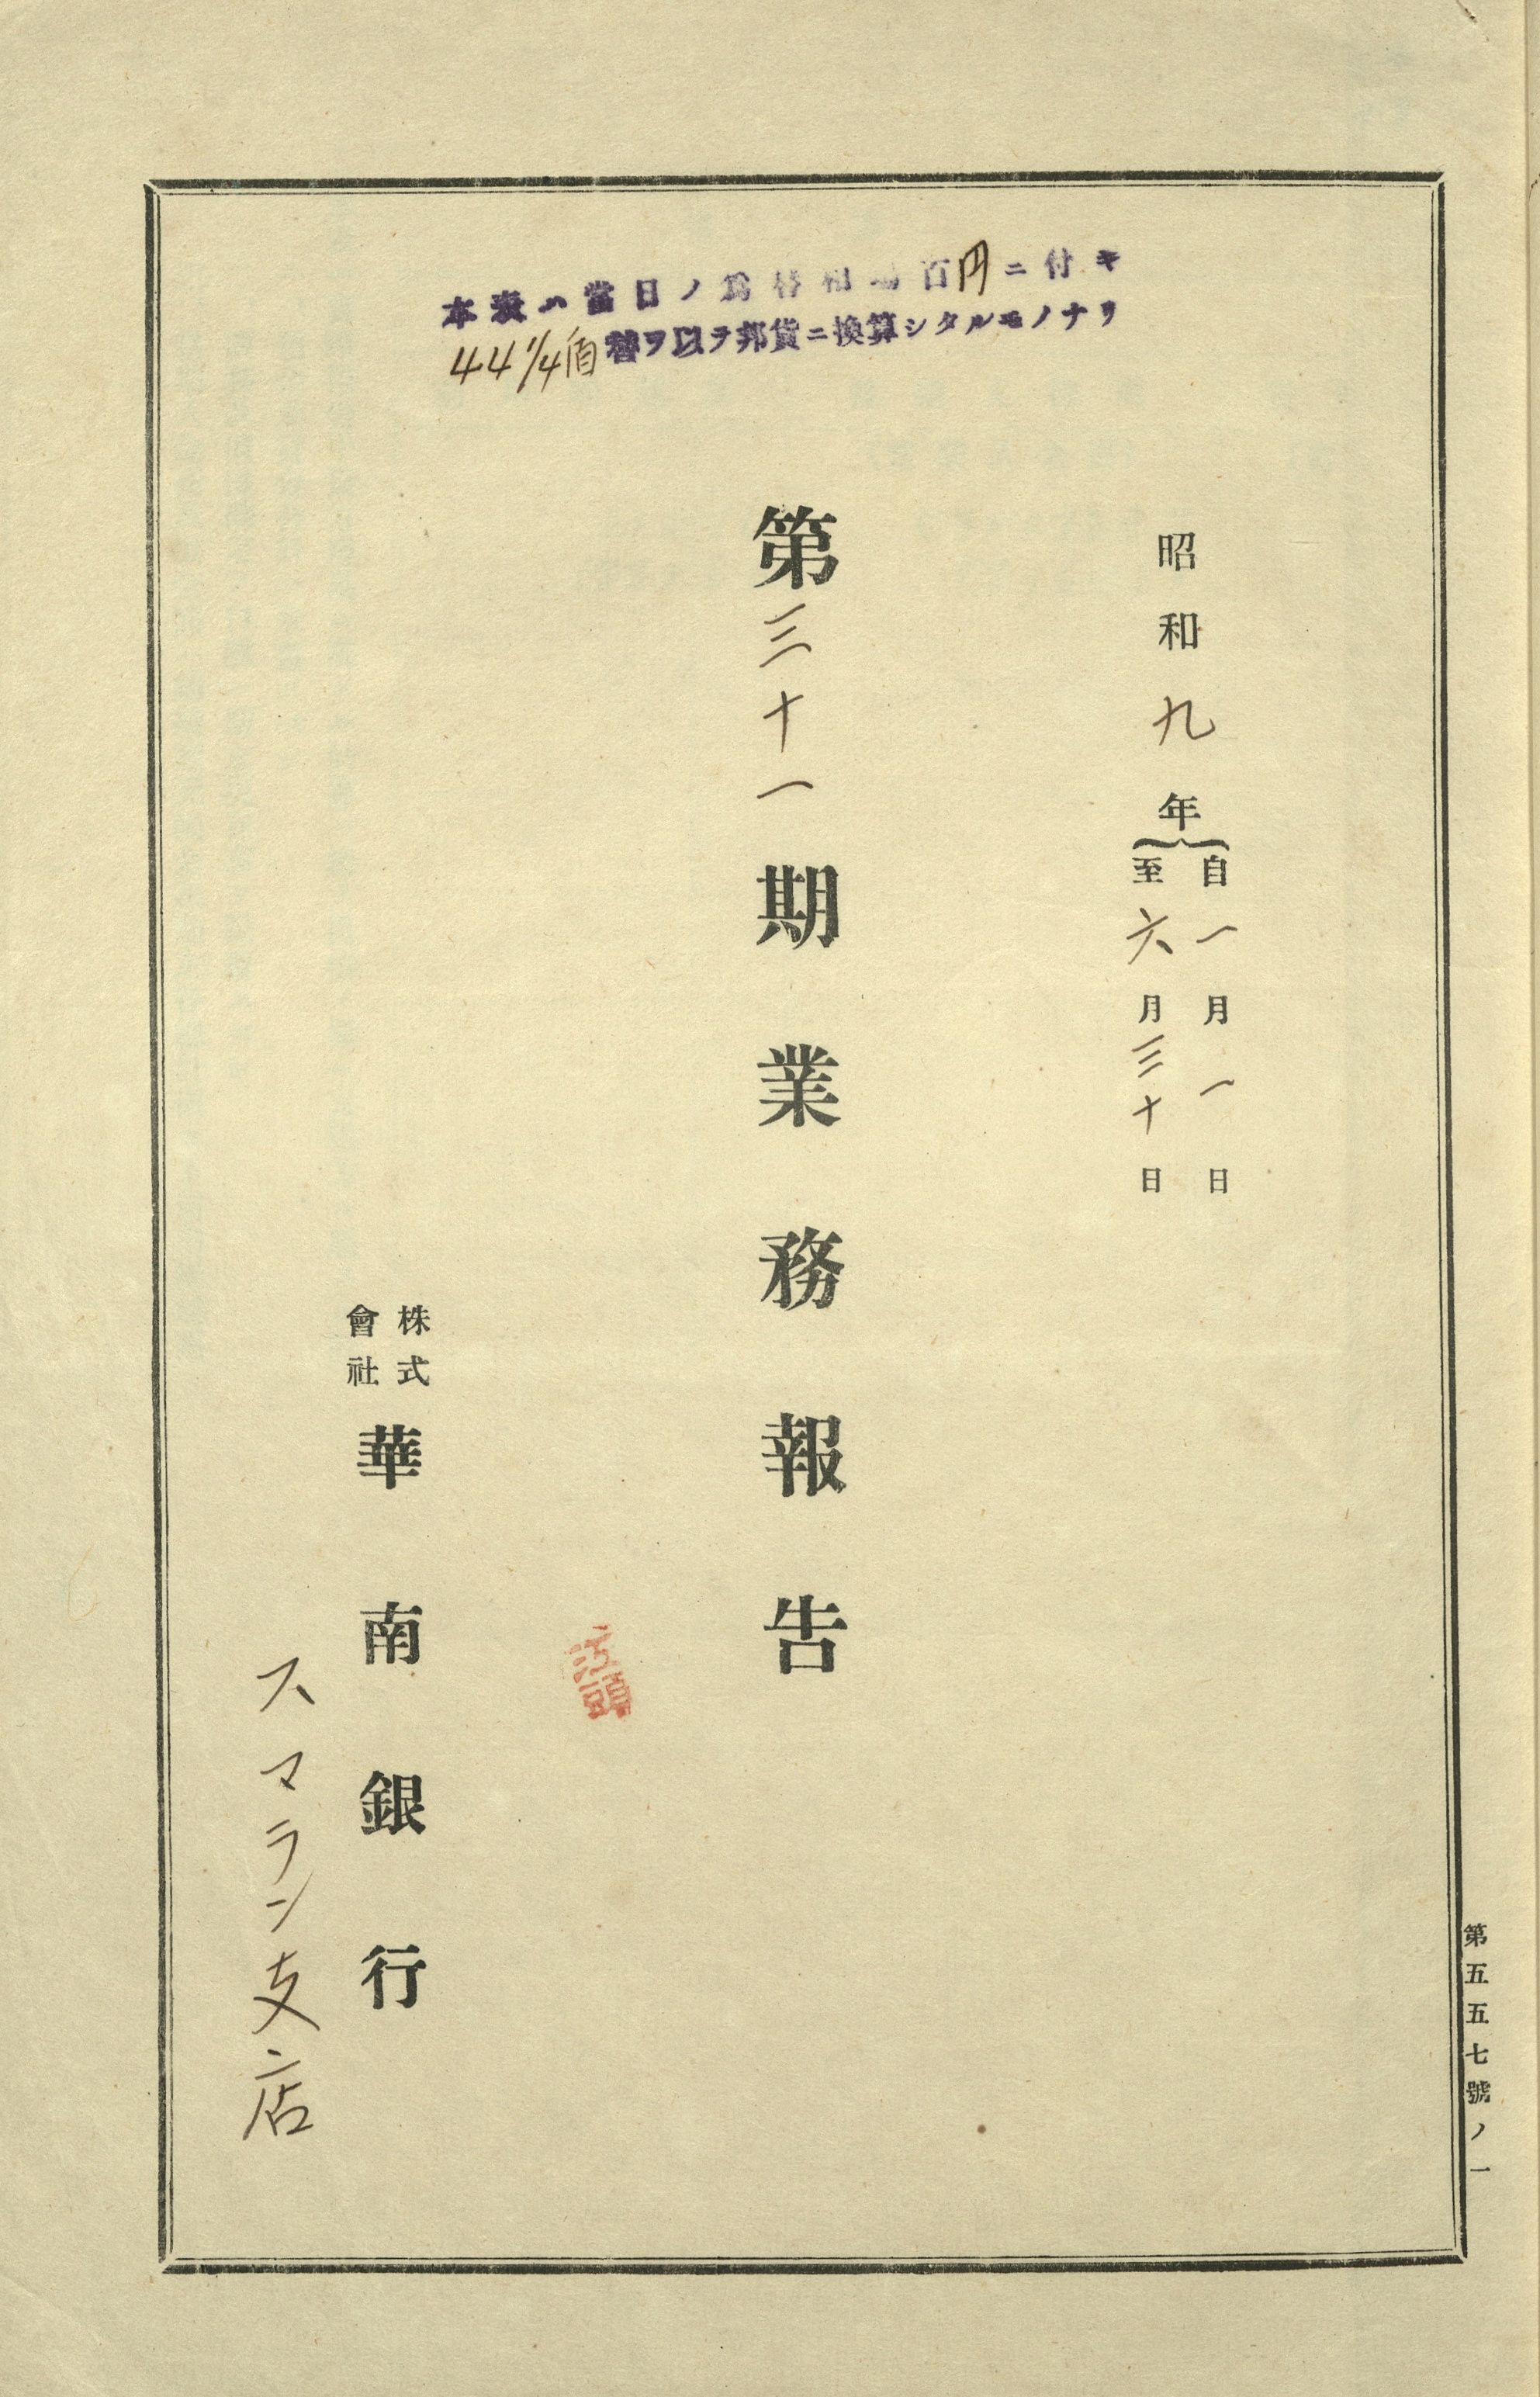 本表ハ當日ノ爲替相場百円ニ付キ
44 1/4盾替ヲ以テ邦貨ニ換算シタルモノナリ
昭和九年
自一月一日
至六月三十日
第三十一期業務報告
株式
會社
華南銀行
スマラン支店
第五五七號ノ一